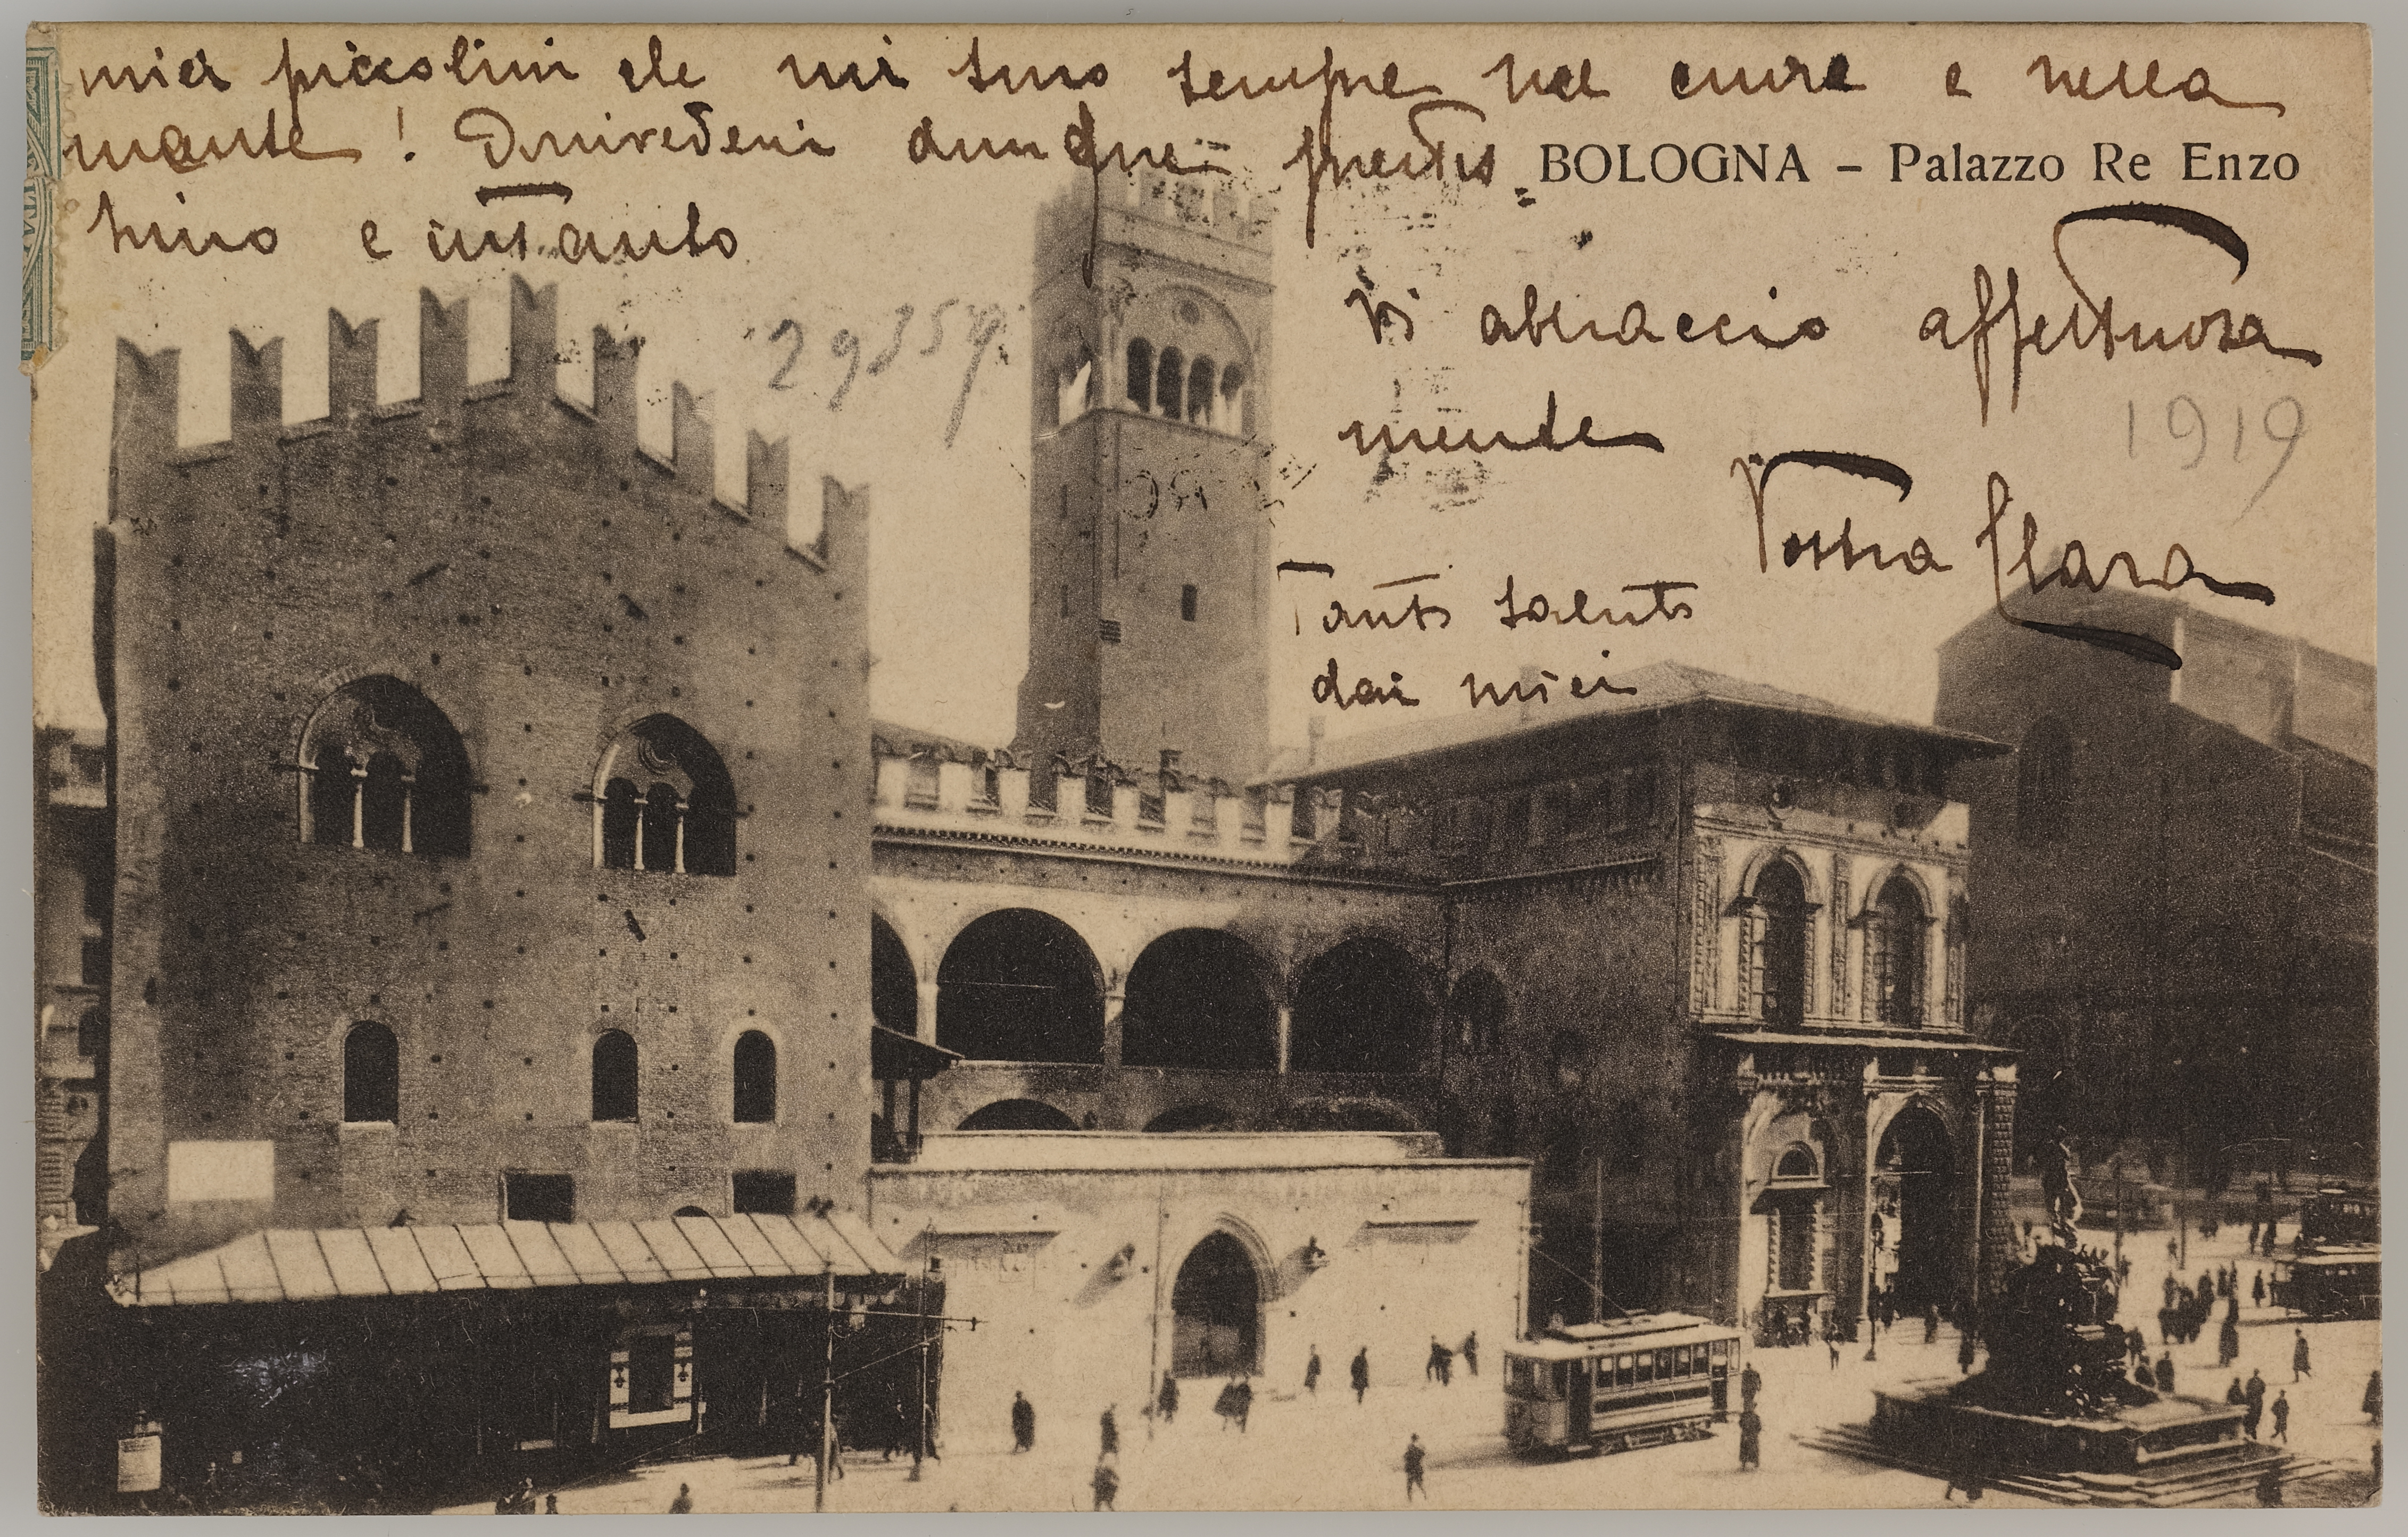 miei piccolini che mi sono sempre nel cuore e nella
mente! Arrivederci dunque prestis=
BOLOGNA – Palazzo Re Enzo
simo e intanto
Vi abbraccio affettuosa
mente
1919
Vostra Clara
Tanti saluti
dai miei